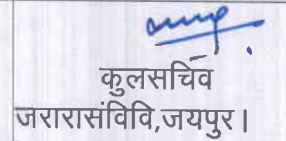 कुलसचिव
जरारासंविवि,जयपुर।